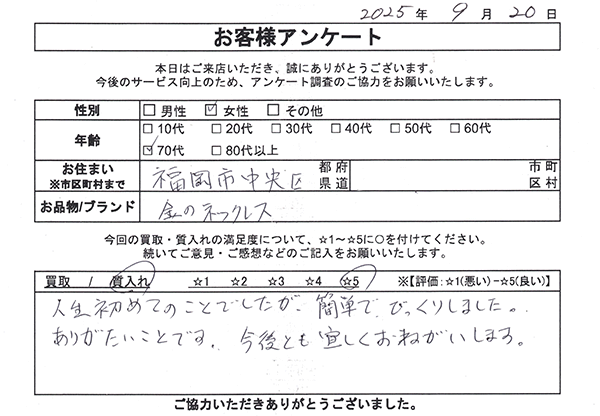 2025年 9月 20日
お客様アンケート
本日はご来店いただき、誠にありがとうございます。
今後のサービス向上のため、アンケート調査のご協力をお願いいたします。
性別 □男性 ☑女性 □その他
年齢 □10代 □20代 □30代 □40代 □50代 □60代
☑70代 □80代以上
お住まい ※市区町村まで 福岡市中央区 都府県道 市町区村
お品物/ブランド 金のネックレス
今回の買取・質入れの満足度について、☆1～☆5に○を付けてください。
続いてご意見・ご感想などのご記入をお願いいたします。
買取 / 質入れ ☆1 ☆2 ☆3 ☆4 ☆5 ※【評価:☆1(悪い)-☆5(良い)】
人生初めてのことでしたが、簡単で、びっくりしました。
ありがたいことです。今後とも宜しくおねがいします。
ご協力いただきありがとうございました。